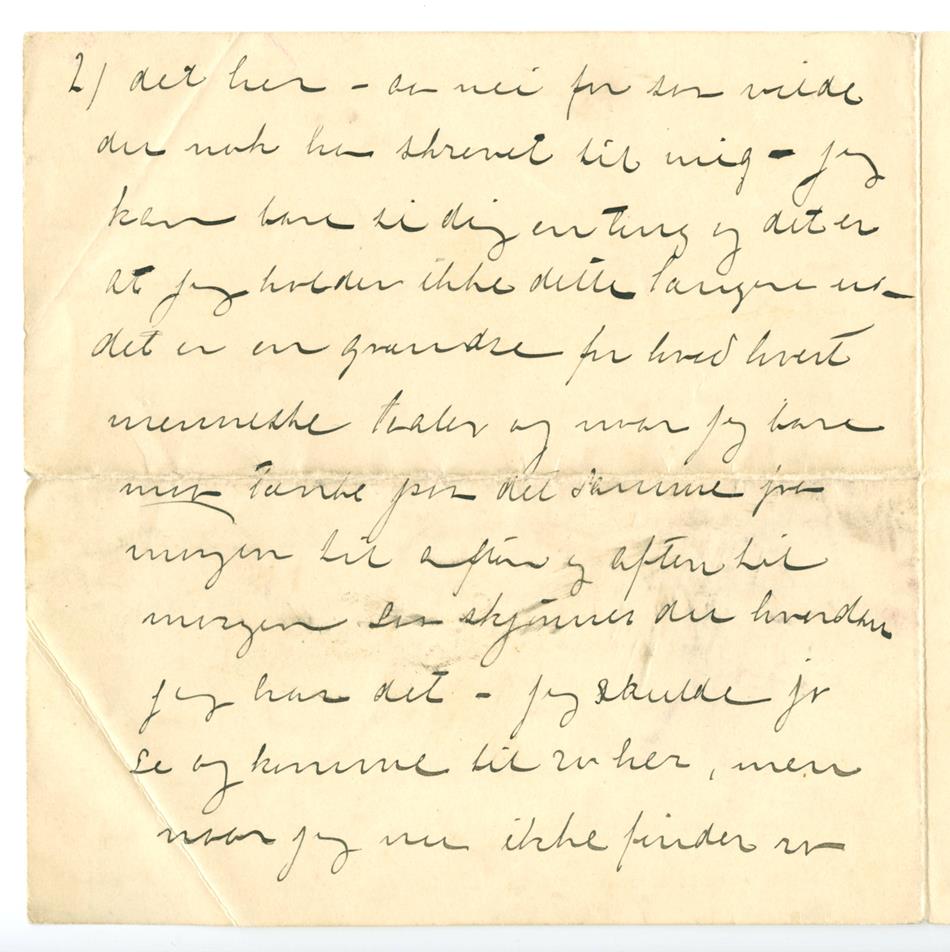 2) det her - aa nei for saa vilde
du nok ha skrevet til mig - jeg
kan bare si dig en ting og det er
at jeg holder ikke dette længere ut -
det er en grændse for hvad hvert
menneske taaler og naar jeg bare
maa tænke paa det samme fra
morgen til aften og aften til
morgen saa skjønner du hvordan
jeg har det - jeg skulde jo
se og komme til ro her, men
naar jeg nu ikke finder ro